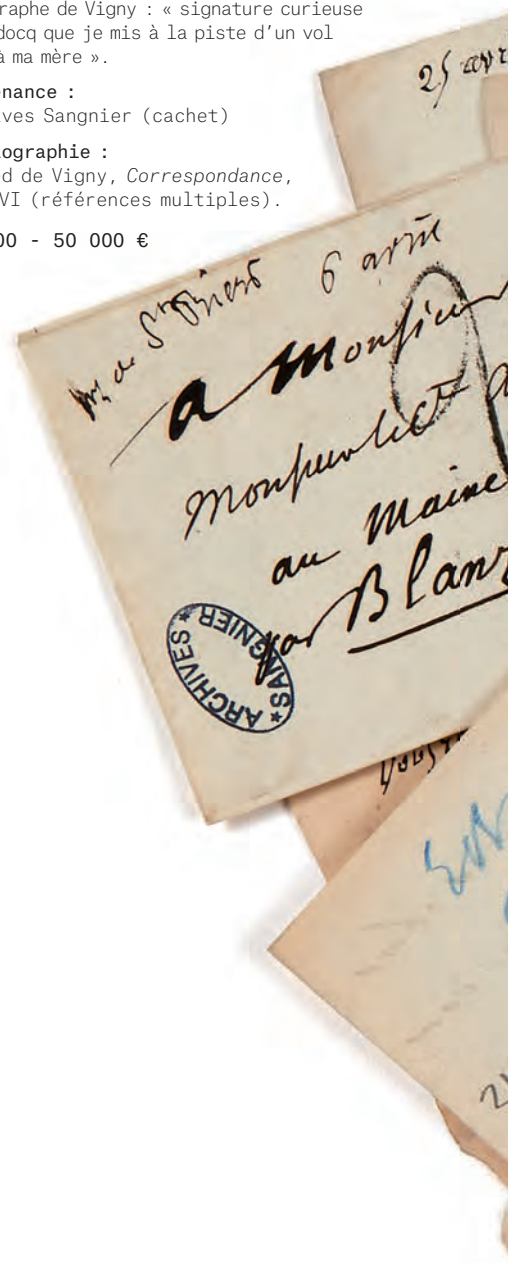 raphe de Vigny : « signature curieuse
docq que je mis à la piste d'un vol
à ma mère ».
nance :
ves Sangnier (cachet)
ographie :
d de Vigny, Correspondance,
VI (références multiples).
00 - 50 000 €
25 avr
6 avril
a Monsieur
Monsieur le Cte
au Maine
par Blanz
ARCHIVES * SANGNIER *